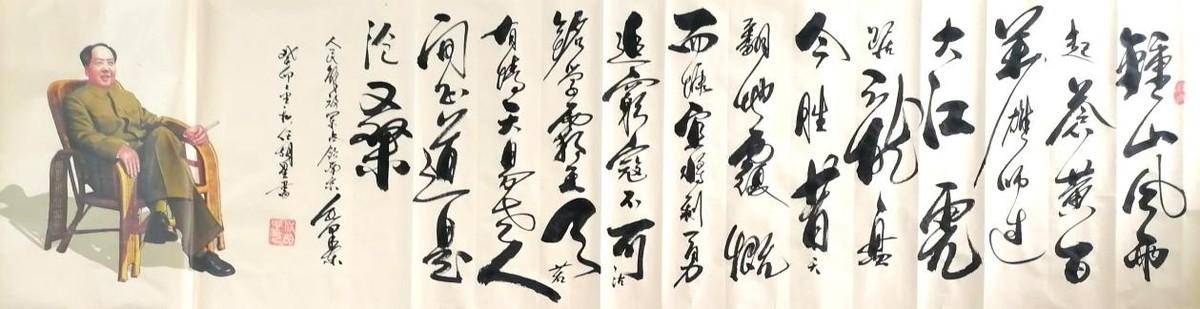 鍾山风雨
起蒼黄百
萬雄师过
大江虎
踞龙盘
今胜昔天
翻地覆慨
而慷宜将剩勇
追穷寇不可沽
名学霸王天若
有情天亦老人
间正道是
沧桑
人民解放军占领南京
癸卯 书